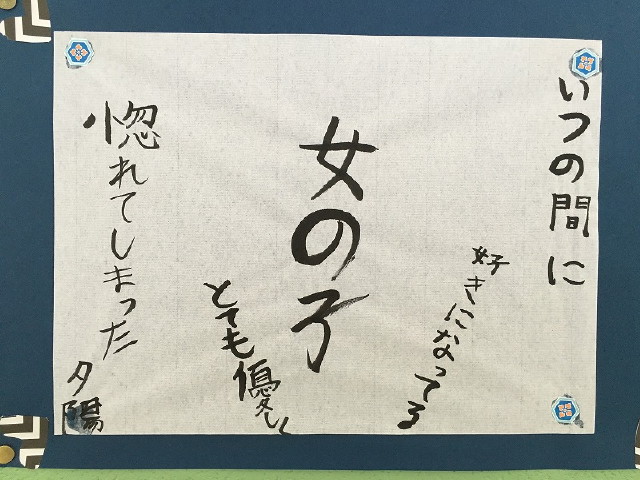 いつの間に
好きになってる
女の子
とても優しく
惚れてしまった
夕陽